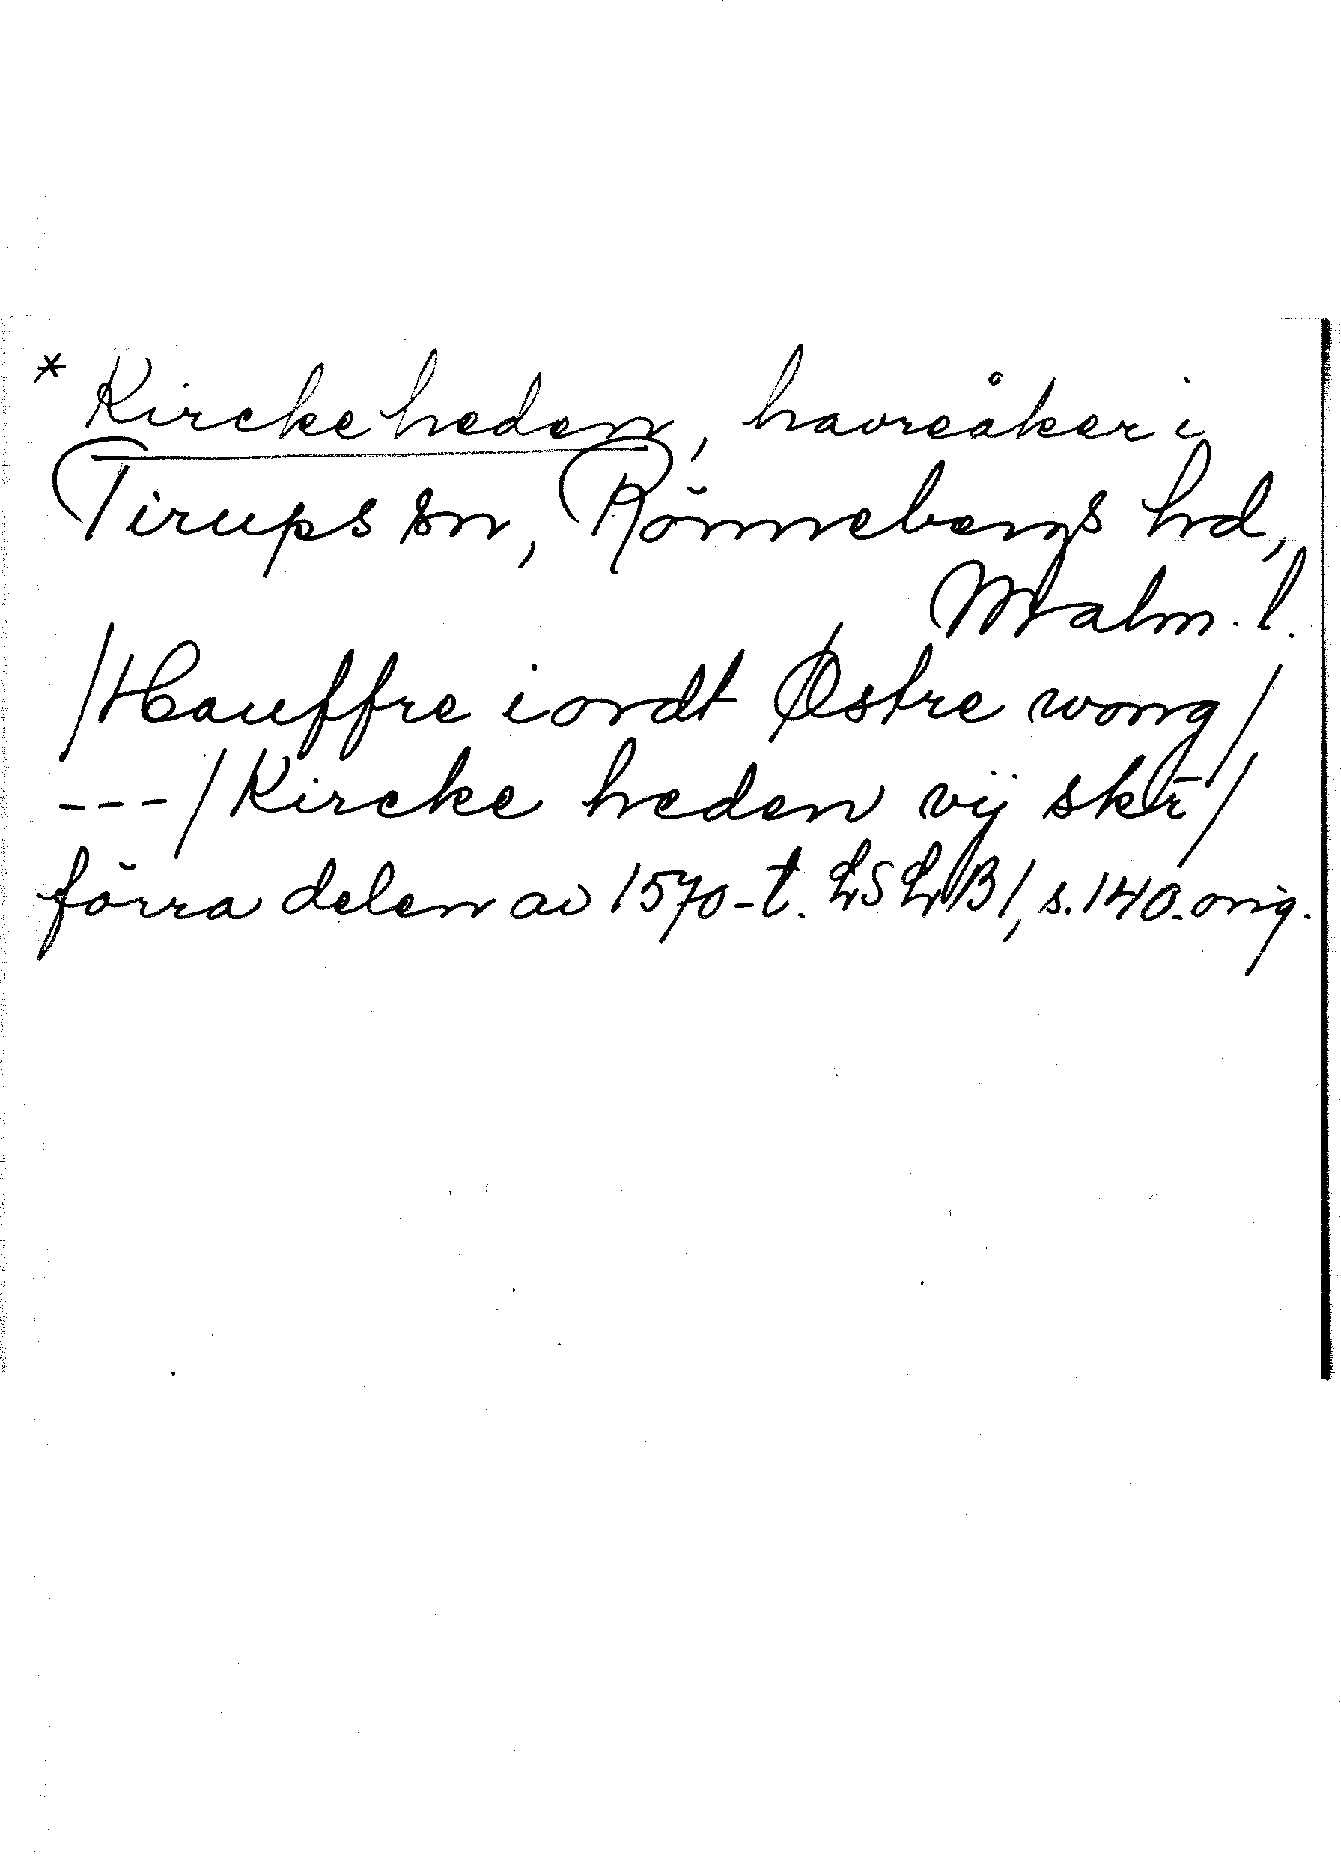 * Kirckeheden, havreåker i
Tirups sn, Rönnebergs hd,
Malm. l.
/Hauffre iordt Østre wong/
---/Kircke heden vij skr̄/
förra delen av 1570-t. LSLB1, s. 140. orig.